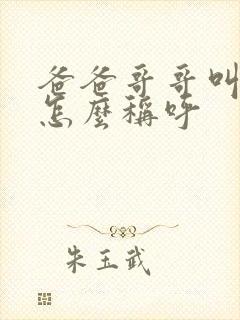 爸爸哥哥叫
怎麼稱呼
朱玉武